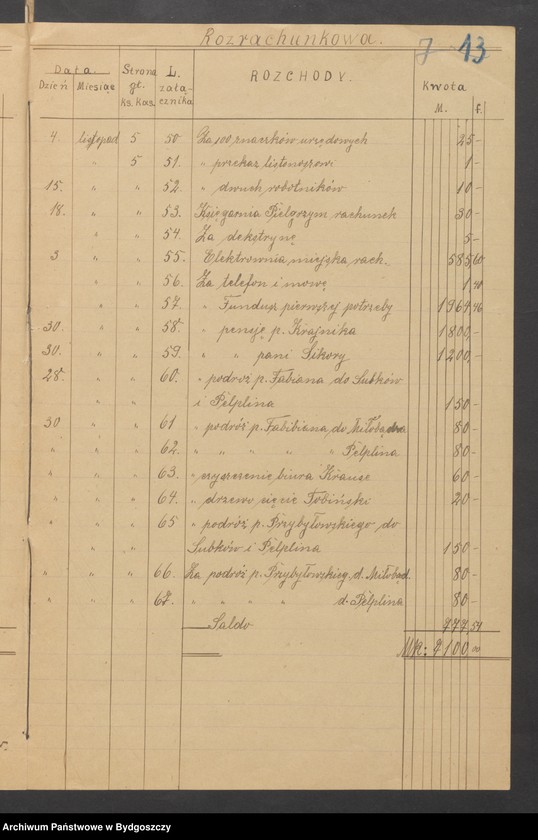 Rozrachunkowa. 7 13
Data. Strona L. ROZCHODY. Kwota
Dzień Miesiąc gł. załą- M. f.
ks. kas. cznika
4. listopad 5 50 Za 100 znaczków urzędowych 25 -
" 5 51. " przekaz listonoszowi 1 -
15. " " 52. " dwuch robotników 10 -
18. " " 53. Księgarnia Pielgrzym rachunek 30 -
" " 54. Za dekstrynę 5 -
3 " " 55. Elektrownia miejska rach. 585,60
" " 56. Za telefon i mowę 1,40
" " 57. " Fundusz pierwszej potrzeby 1964,46
30. " " 58. " pensję p. Krajnika 1800,-
30. " " 59. " " pani Sikory 1200,-
28. " " 60. " podroż p. Fabiana do Subków
" " i Pelplina 150 -
30 " " 61 " podróż p. Fabibiana do Miłobądza 80 -
" " " 62. " " " " " Pelplina 80 -
" " " 63. " czyszczenie biura Krause 60 -
" " " 64. " drzewo sięcie Tobiński 20 -
" " " 65 " podróż p. Przybyłowskiego do
" " Subków i Pelplina 150 -
" " " 66. Za podróż p. Przybyłowskieg. d. Miłobąd. 80 -
" " " 67. " " " " d. Pelplina 80 -
Saldo 777,54
MK: 7100,00
Archiwum Państwowe w Bydgoszczy